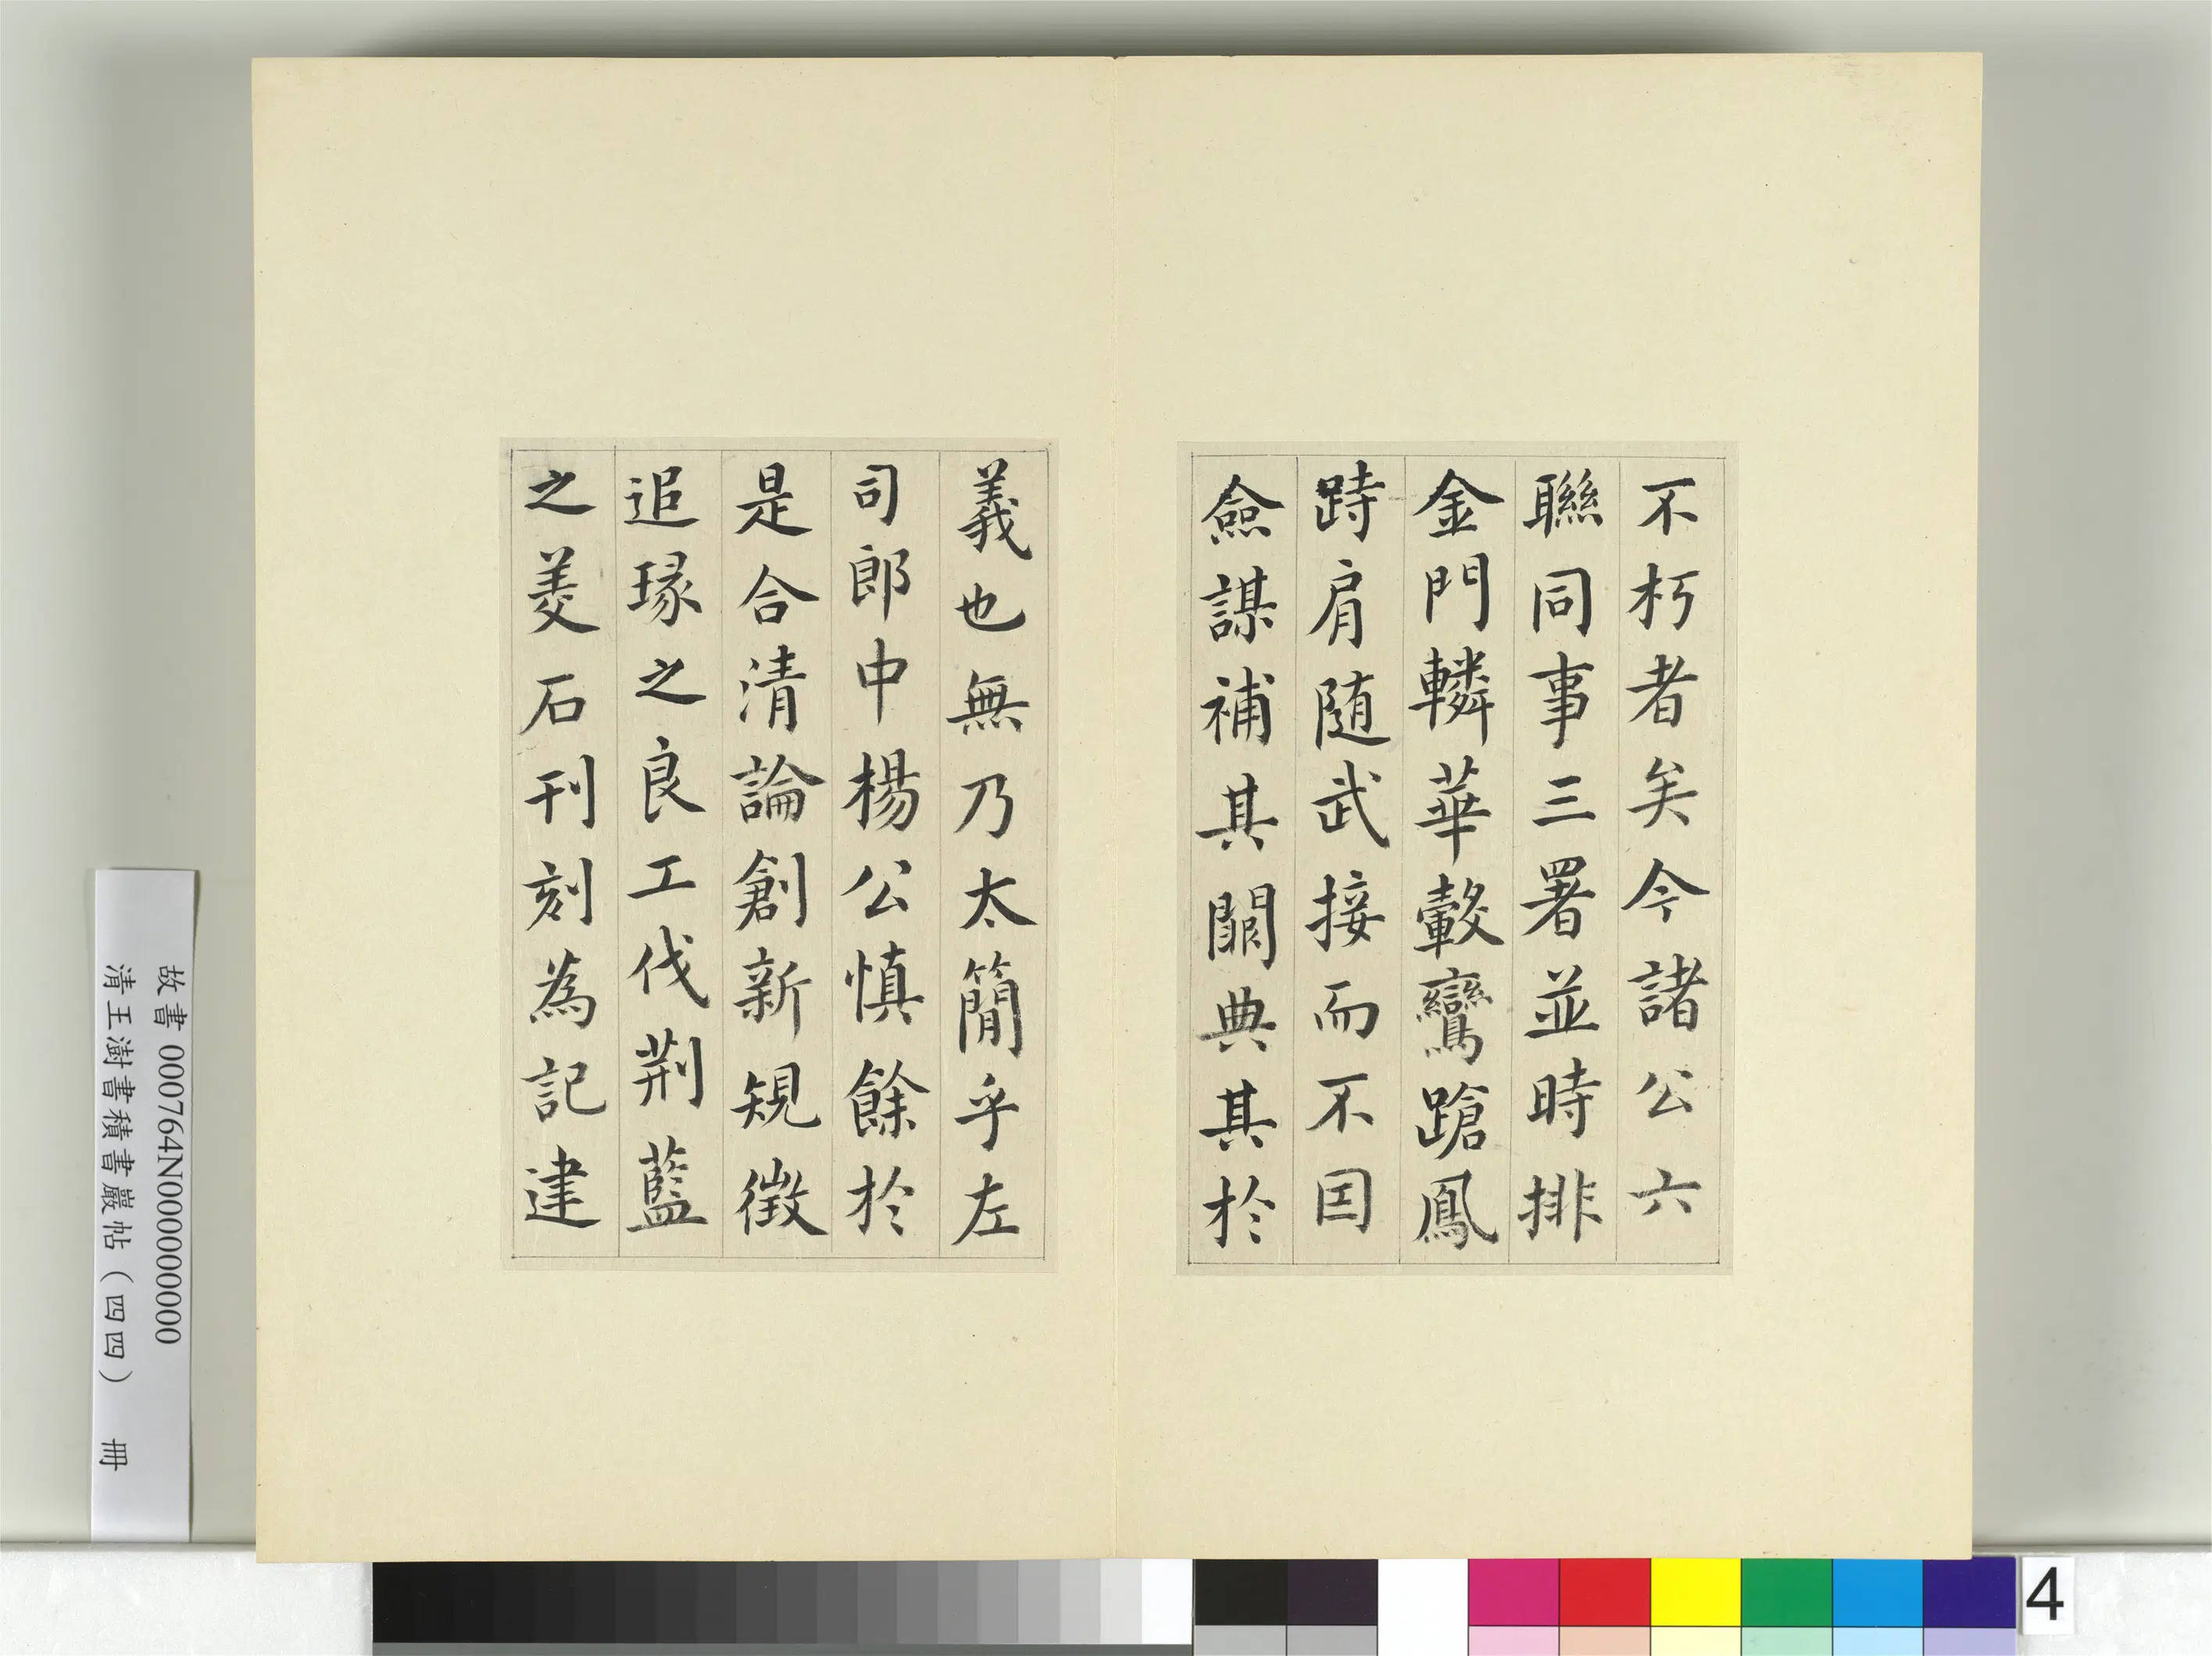 不朽者矣今諸公六
聯同事三署並時排
金門轔華轂鸞蹌鳳
跱肩随武接而不国
僉謀補其闕典其於
義也無乃太簡乎左
司郎中楊公慎餘於
是合清論創新規徵
追琢之良工伐荆藍
之美石刊刻為記建
故書 000764N000000000
清王澍書積書巖帖（四四） 冊
4